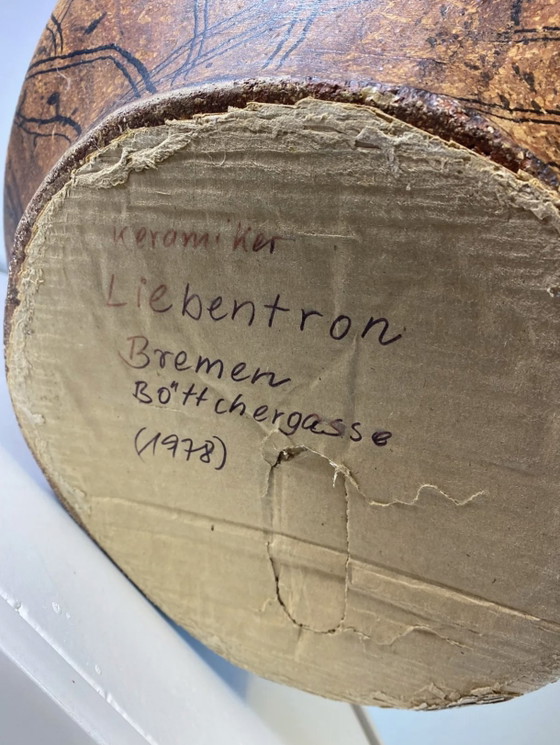 Keramiker
Liebentron
Bremen
Böttchergasse
(1978)